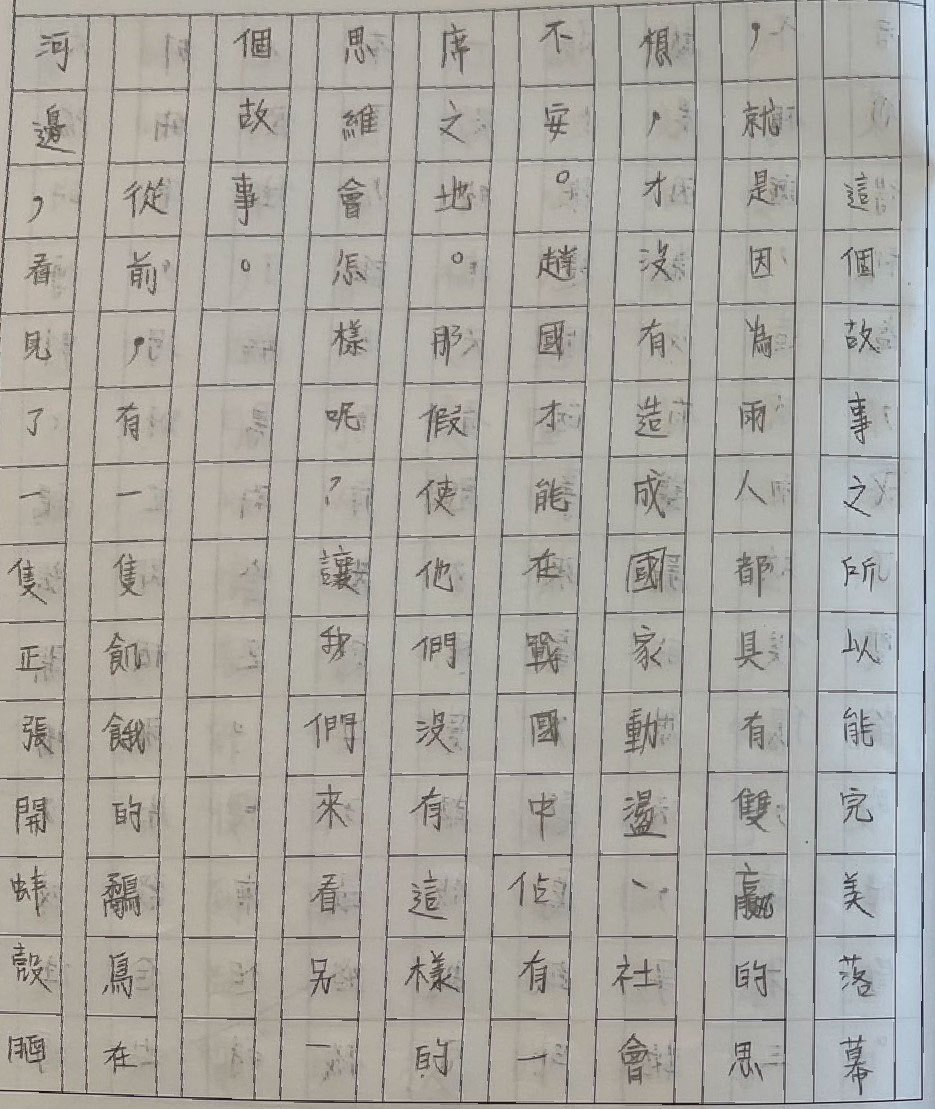 這個故事之所以能完美落幕
，就是因為雨人都具有雙贏的思
想，才沒有造成國家動盪、社會
不安。趙國才能在戰國中佔有一
席之地。那假使他們沒有這樣的
思維會怎樣呢？讓我們來看另一
個故事。
從前，有一隻飢餓的鷸鳥在
河邊，看見了一隻正張開蚌殼晒